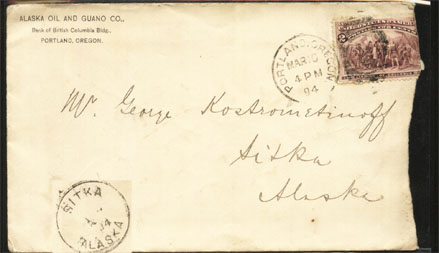 ALASKA OIL AND GUANO CO.,
Bank of British Columbia Bldg.,
PORTLAND, OREGON.
PORTLAND, OREGON
MAR 
4 PM
94
2
Mr. George Kostrometinoff
Sitka
Alaska
SITKA
94
ALASKA